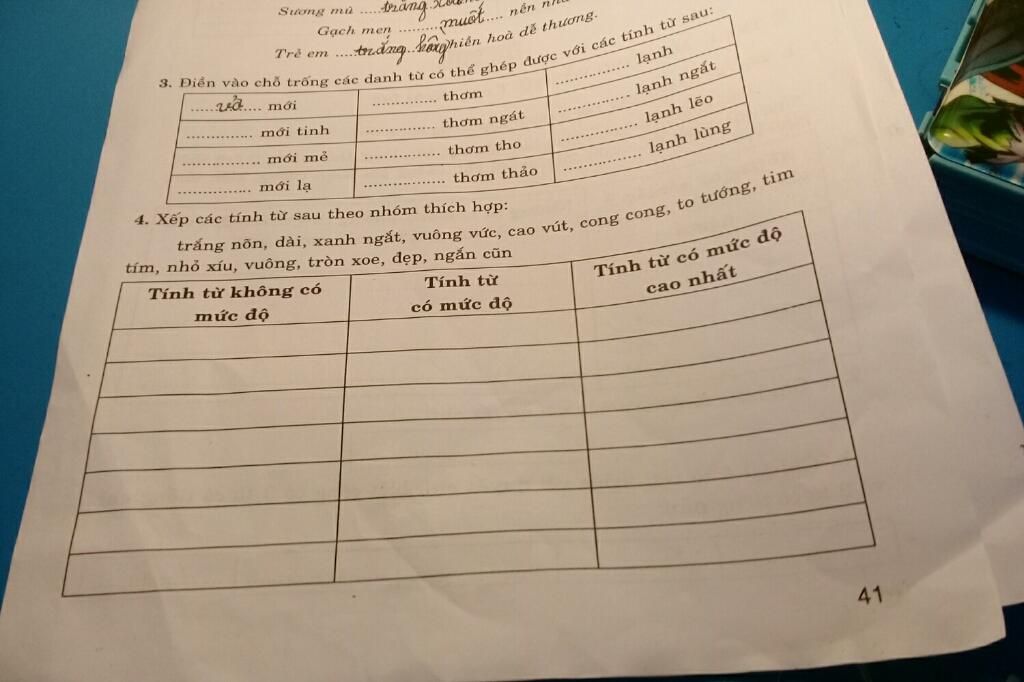 Sương mù ..... trắng
Gạch men ......... muốt .... nền
Trẻ em ..... trắng hồng hiền hoà dễ thương.
3. Điền vào chỗ trống các danh từ có thể ghép được với các tính từ sau:
...... vở .... mới .............. thơm ............... lạnh
.............. mới tinh .............. thơm ngát ............... lạnh ngắt
................ mới mẻ ................ thơm tho ................ lạnh lẽo
............... mới lạ ................. thơm thảo ................ lạnh lùng
4. Xếp các tính từ sau theo nhóm thích hợp:
trắng nõn, dài, xanh ngắt, vuông vức, cao vút, cong cong, to tướng, tim
tím, nhỏ xíu, vuông, tròn xoe, đẹp, ngắn cũn
Tính từ không có Tính từ Tính từ có mức độ
mức độ có mức độ cao nhất
41